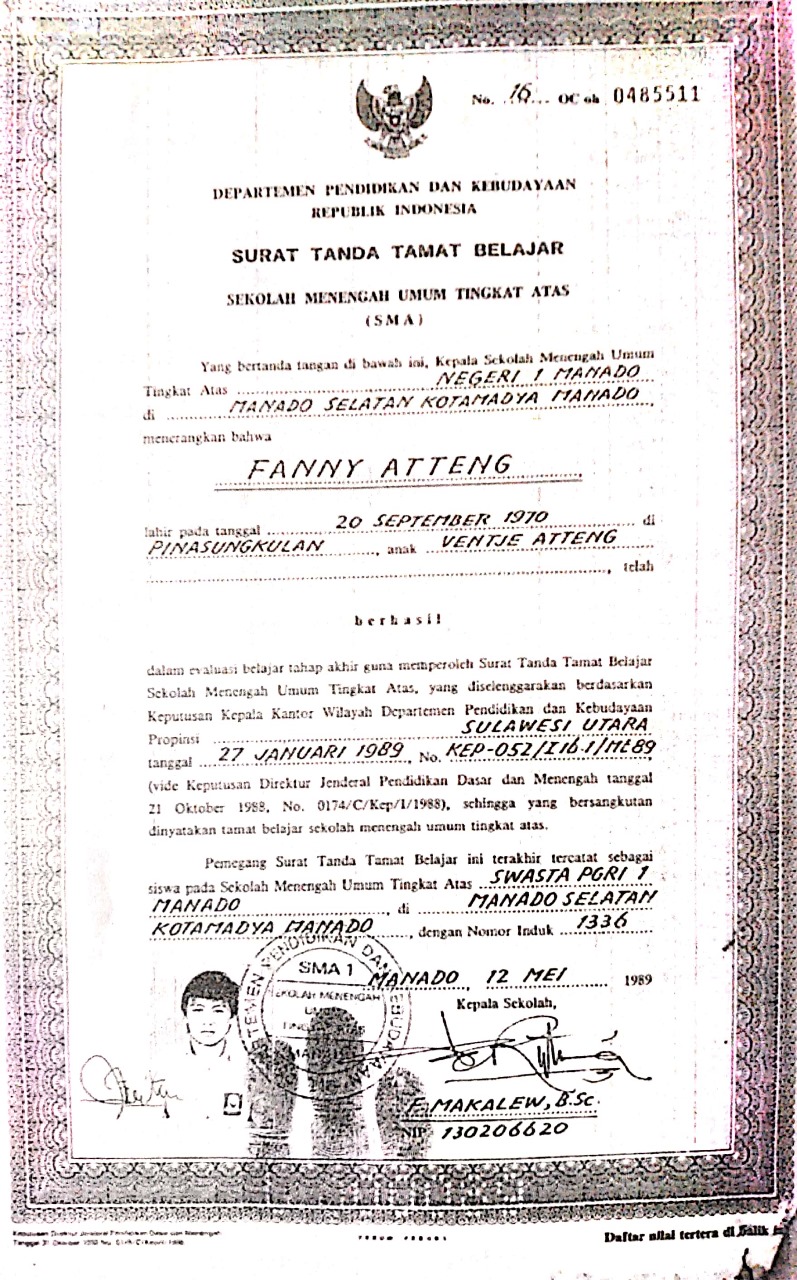 No. 16 OC oh 0485511
DEPARTEMEN PENDIDIKAN DAN KEBUDAYAAN
REPUBLIK INDONESIA
SURAT TANDA TAMAT BELAJAR
SEKOLAH MENENGAH UMUM TINGKAT ATAS
(SMA)
Yang bertanda tangan di bawah ini, Kepala Sekolah Menengah Umum
Tingkat Atas NEGERI 1 MANADO
di MANADO SELATAN KOTAMADYA MANADO
menerangkan bahwa
FANNY ATTENG
lahir pada tanggal 20 SEPTEMBER 1970 di
PINASUNGKULAN, anak VENTJE ATTENG
, telah
berhasil
dalam evaluasi belajar tahap akhir guna memperoleh Surat Tanda Tamat Belajar
Sekolah Menengah Umum Tingkat Atas, yang diselenggarakan berdasarkan
Keputusan Kepala Kantor Wilayah Departemen Pendidikan dan Kebudayaan
Propinsi SULAWESI UTARA
tanggal 27 JANUARI 1989, No. KEP-052/I16.1/ME89
(vide Keputusan Direktur Jenderal Pendidikan Dasar dan Menengah tanggal
21 Oktober 1988, No. 0174/C/Kep/I/1988), sehingga yang bersangkutan
dinyatakan tamat belajar sekolah menengah umum tingkat atas.
Pemegang Surat Tanda Tamat Belajar ini terakhir tercatat sebagai
siswa pada Sekolah Menengah Umum Tingkat Atas SWASTA PGRI 1
MANADO, di MANADO SELATAN
KOTAMADYA MANADO, dengan Nomor Induk 1336
MANADO, 12 MEI 1989
Kepala Sekolah,
SMA 1
SEKOLAH MENENGAH
F. MAKALEW, B.Sc.
NIP 130206620
Daftar nilai tertera di balik